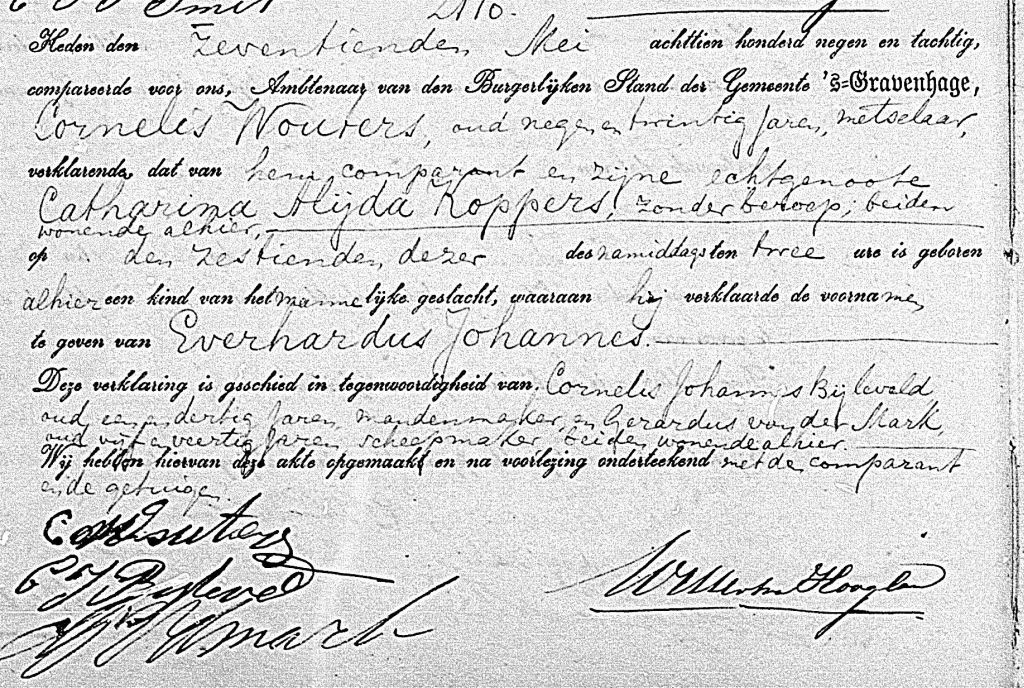 2110.
Heden den zeventienden Mei achttien honderd negen en tachtig,
compareerde voor ons, Ambtenaar van den Burgerlijken Stand der Gemeente 's-Gravenhage,
Cornelis Wouters, oud negen en twintig Jaren, metselaar,
verklarende, dat van hem comparant en zijne echtgenoote
Catharina Alijda Koppers, zonder beroep; beiden
wonende alhier,
op den zestienden dezer des namiddags ten twee ure is geboren
alhier een kind van het mannelijke geslacht, waaraan hij verklaarde de voornamen
te geven van Everhardus Johannes.
Deze verklaring is geschied in tegenwoordigheid van Cornelis Johannes Bijleveld
oud een en dertig Jaren, mandenmaker, en Gerardus van der Mark
oud vijf en veertig Jaren scheepmaker, beiden wonende alhier.
Wij hebben hiervan deze akte opgemaakt en na voorlezing onderteekend met de comparant
en de getuigen.
C Wouters
C J Bijleveld